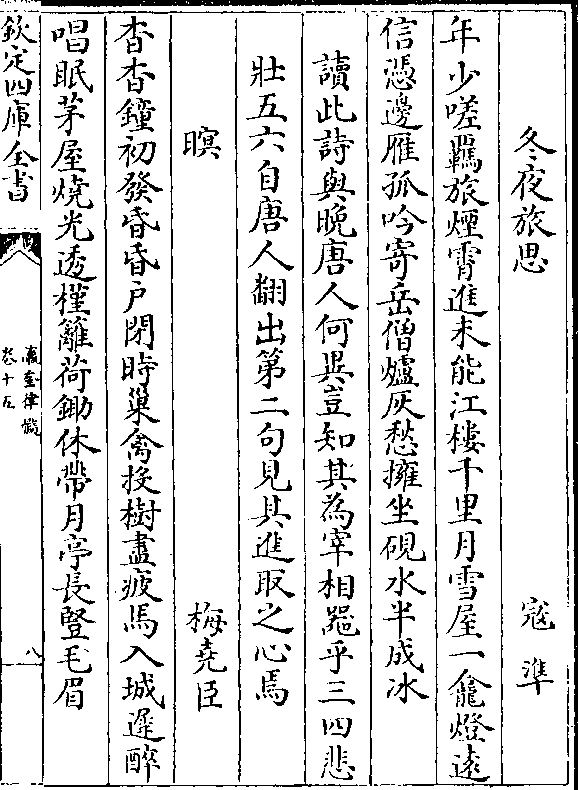 冬夜旅思　寇準
年少嗟羈旅煙霄進未能江樓千里月雪屋一龕燈逺
信憑邊雁孤吟寄岳僧爐灰愁擁坐硯水半成冰
讀此詩與晚唐人何異豈知其為宰相器乎三四悲
壯五六自唐人翻出第二句見其進取之心焉
暝　梅堯臣
杳杳鐘初發昏昏户閉時巢禽投樹盡疲馬入城遲醉
唱眠茅屋燒光透槿籬荷鋤休帶月亭長豎毛眉
欽定四庫全書
瀛奎律髓
卷十五
八